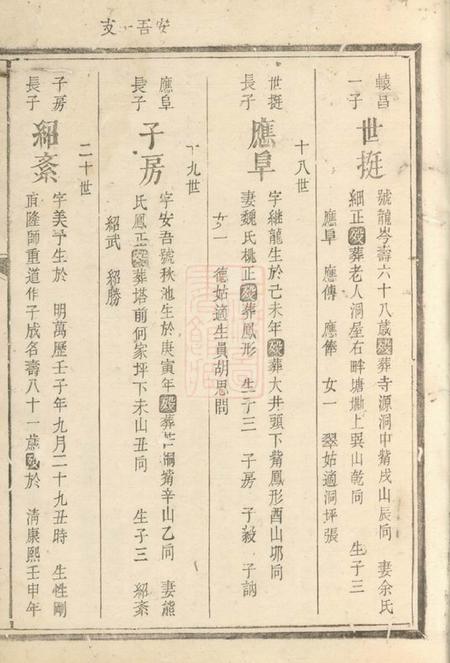 安吾一支
轅昌
一子
世挺
號龍岑壽六十八歲歿葬寺源洞中觜戌山辰同 妻余氏
細正歿葬老人洞屋右畔塘塝上巽山乾同 生子三
應阜 應傳 應俸 女一 翠姑適洞坪張
十八世
世挺
長子
應阜
字継龍生於己未年歿葬大井頭下觜鳳形酉山卯同
妻魏氏桃正歿葬鳳形 生子三 子房 子毅 子訥
女一 德姑適生員胡思問
十九世
應阜
長子
子房
字安吾號秋池生於庚寅年歿葬 洞觜辛山乙同 妻熊
氏鳳正歿葬塔前何家坪下未山丑同 生子三 紹紊
紹武 紹勝
二十世
子房
長子
紹紊
字美予生於 明萬歷壬子年九月二十九丑時 生性剛
直隆師重道作子成名壽八十一歲歿於 清康熙壬申年